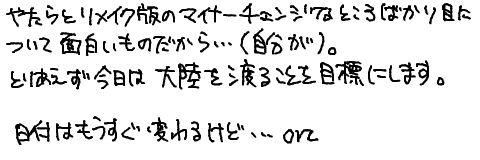 やたらとリメイク版のマイナーチェンジなところばかり目に
ついて面白いものだから…(自分が)。
とりあえず今日は大陸を渡ることを目標にします。
日付はもうすぐ変わるけど… orz